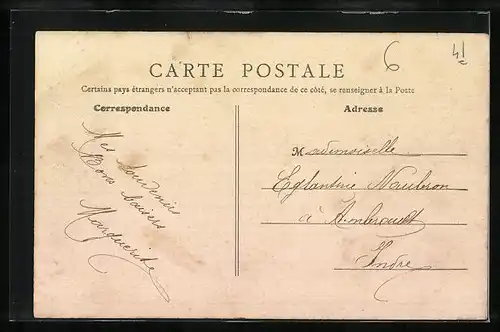 6
41
CARTE POSTALE
Certains pays étrangers n'acceptant pas la correspondance de ce côté, se renseigner à la Poste
Correspondance
Adresse
Mes souvenirs
Bons baisers
Marguerite
Mademoiselle
Eglantine
à Ambrault
Indre